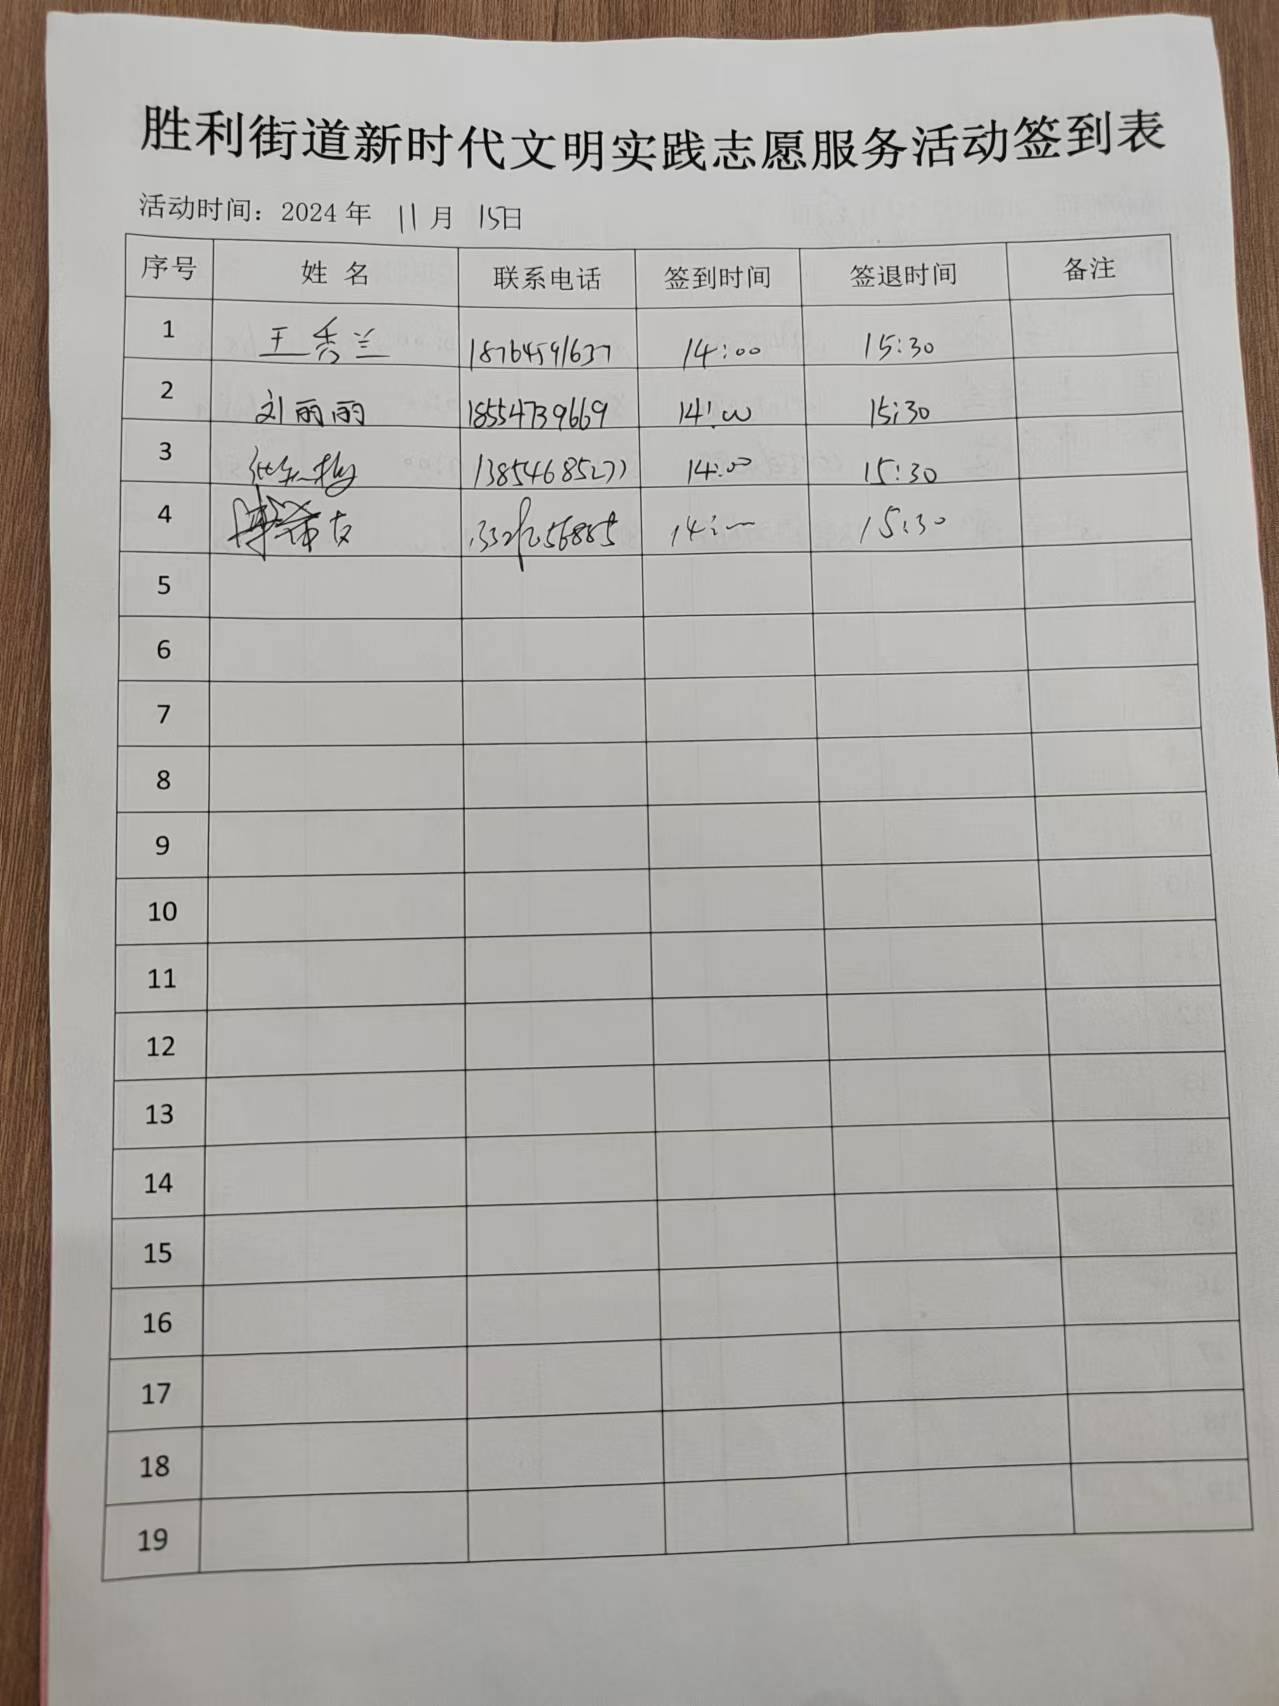 胜利街道新时代文明实践志愿服务活动签到表
活动时间：2024 年 11 月 15日
序号 姓 名 联系电话 签到时间 签退时间 备注
1 王秀兰 18764591637 14:00 15:30
2 刘丽丽 18554739669 14:00 15:30
3 13854685277 14:00 15:30
4 14:00 15:30
5
6
7
8
9
10
11
12
13
14
15
16
17
18
19